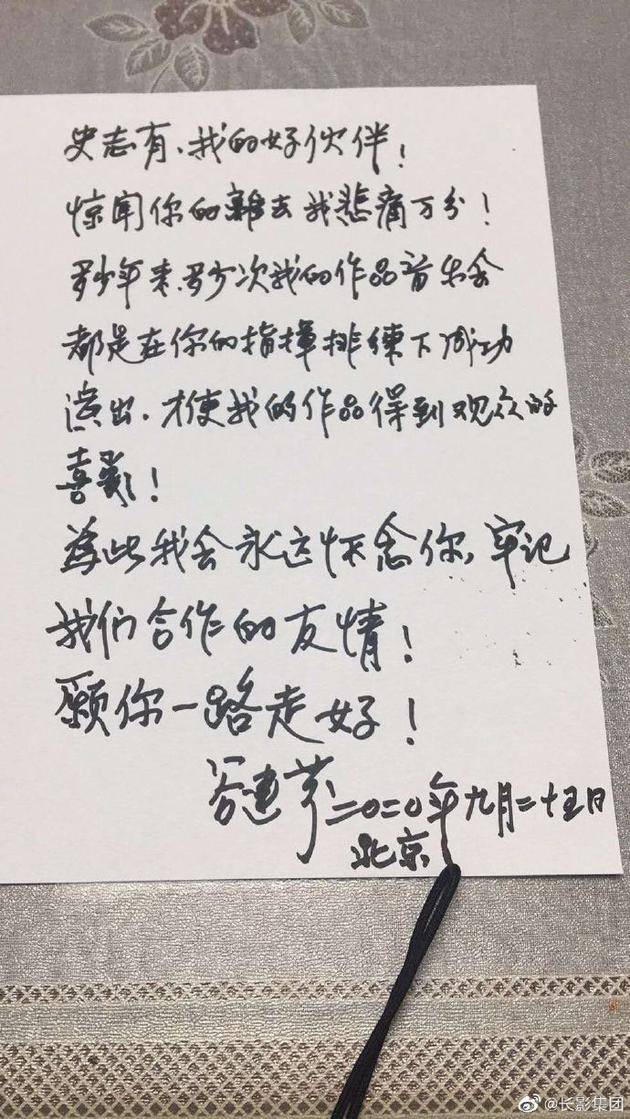 史志有、我的好伙伴！
惊闻你的離去我悲痛万分！
多少年来、多少次我的作品音乐会
都是在你的指挥排练下成功
演出、才使我的作品得到观众的
喜爱！
為此我会永远怀念你、牢记
我们合作的友情！
願你一路走好！
谷建芬二〇二〇年九月二十五日
北京
@长影集团